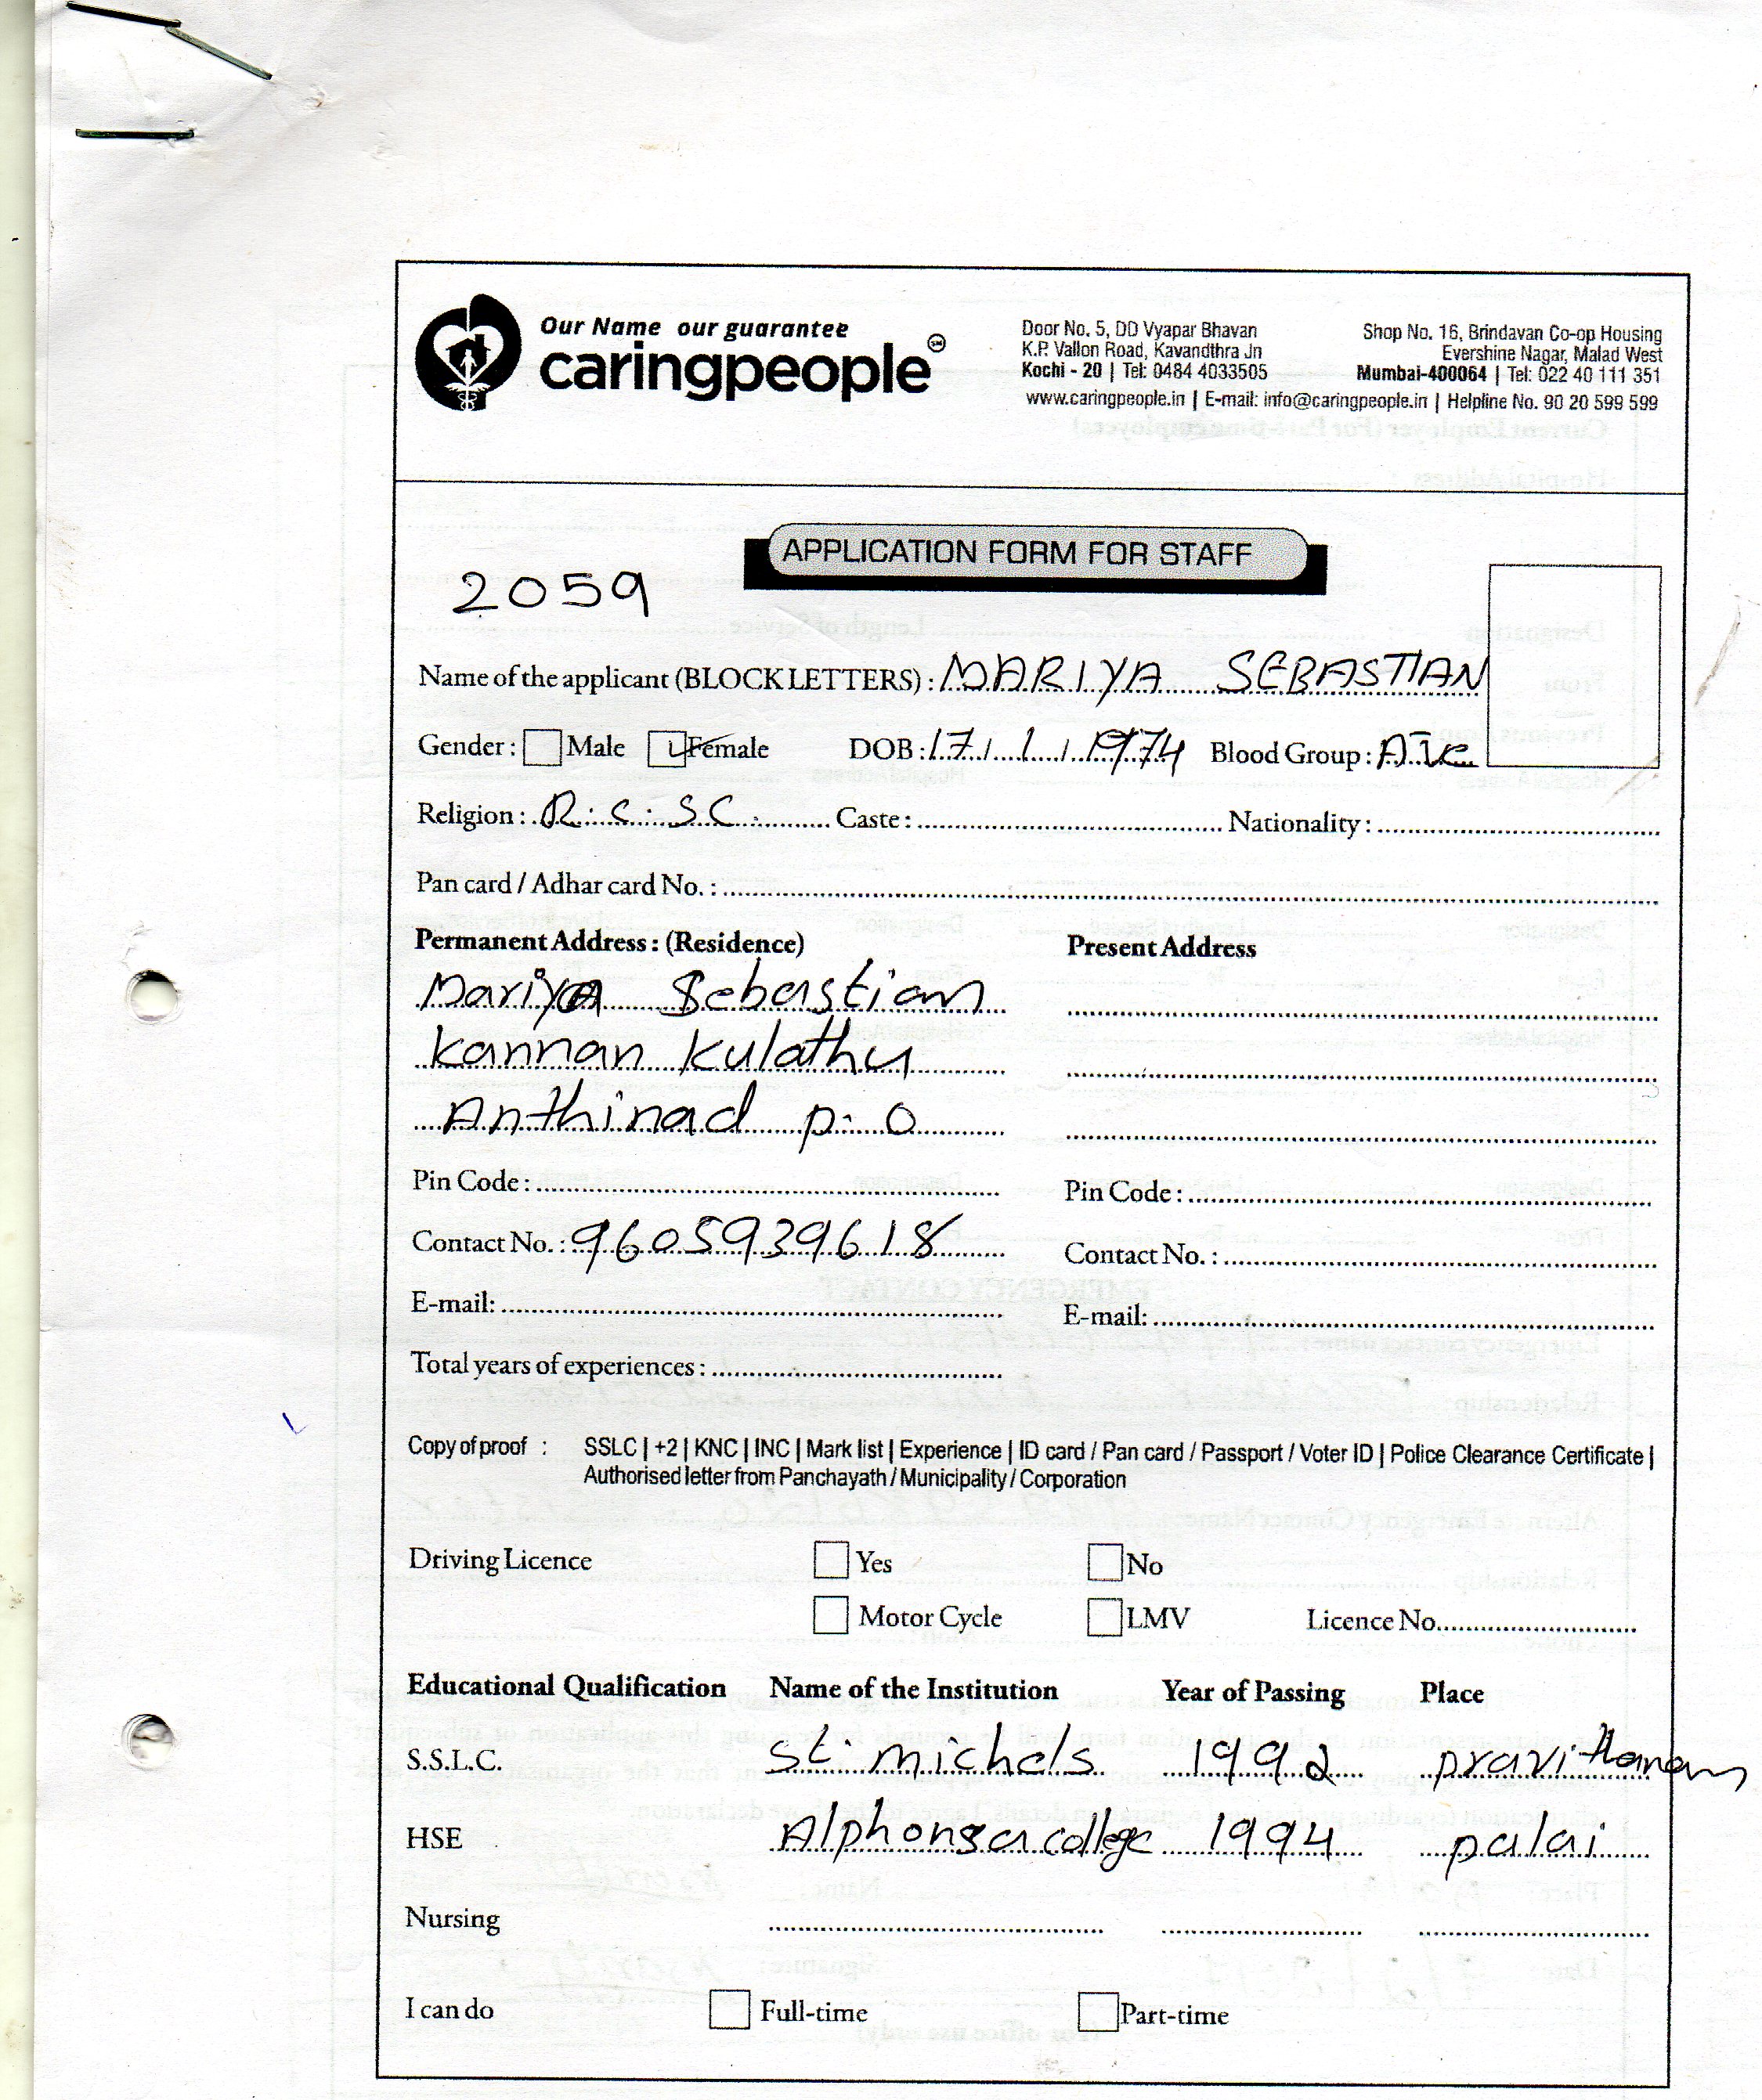 Our Name our guarantee
caringpeople
SM
Door No. 5, DD Vyapar Bhavan
K.P. Vallon Road, Kavandthra Jn
Kochi - 20 | Tel: 0484 4033505
Shop No. 16, Brindavan Co-op Housing
Evershine Nagar, Malad West
Mumbai-400064 | Tel: 022 40 111 351
www.caringpeople.in | E-mail: info@caringpeople.in | Helpline No. 90 20 599 599
APPLICATION FORM FOR STAFF
2059
Name of the applicant (BLOCK LETTERS) : MARIYA SEBASTIAN
Gender : Male Female DOB : 17 / 1 / 1974 Blood Group :
Religion : R.C.S.C. Caste : Nationality :
Pan card / Adhar card No. :
Permanent Address : (Residence) Present Address
Mariya Sebastian
Kannan Kulathu
Anthinad p.o
Pin Code : Pin Code :
Contact No. : 9605939618 Contact No. :
E-mail: E-mail:
Total years of experiences :
Copy of proof : SSLC | +2 | KNC | INC | Mark list | Experience | ID card / Pan card / Passport / Voter ID | Police Clearance Certificate |
Authorised letter from Panchayath / Municipality / Corporation
Driving Licence Yes No
Motor Cycle LMV Licence No.
Educational Qualification Name of the Institution Year of Passing Place
S.S.L.C. St. michels 1992 pravithanam
HSE Alphonsa college 1994 palai
Nursing
I can do Full-time Part-time